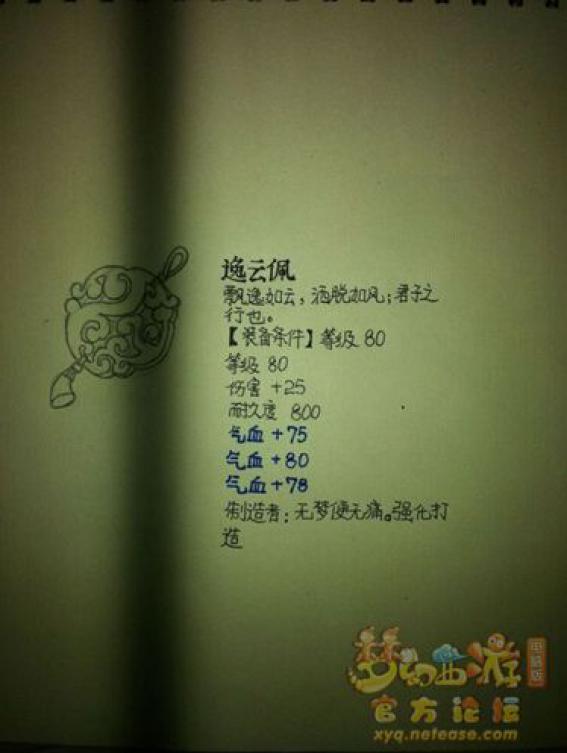 逸云佩
飘逸如云，洒脱如风；君子之
行也。
【装备条件】等级 80
等级 80
伤害 +25
耐久度 800
气血 +75
气血 +80
气血 +78
制造者：无梦便无痛。强化打
造
梦幻西游
电脑版
官方论坛
xyq.netease.com